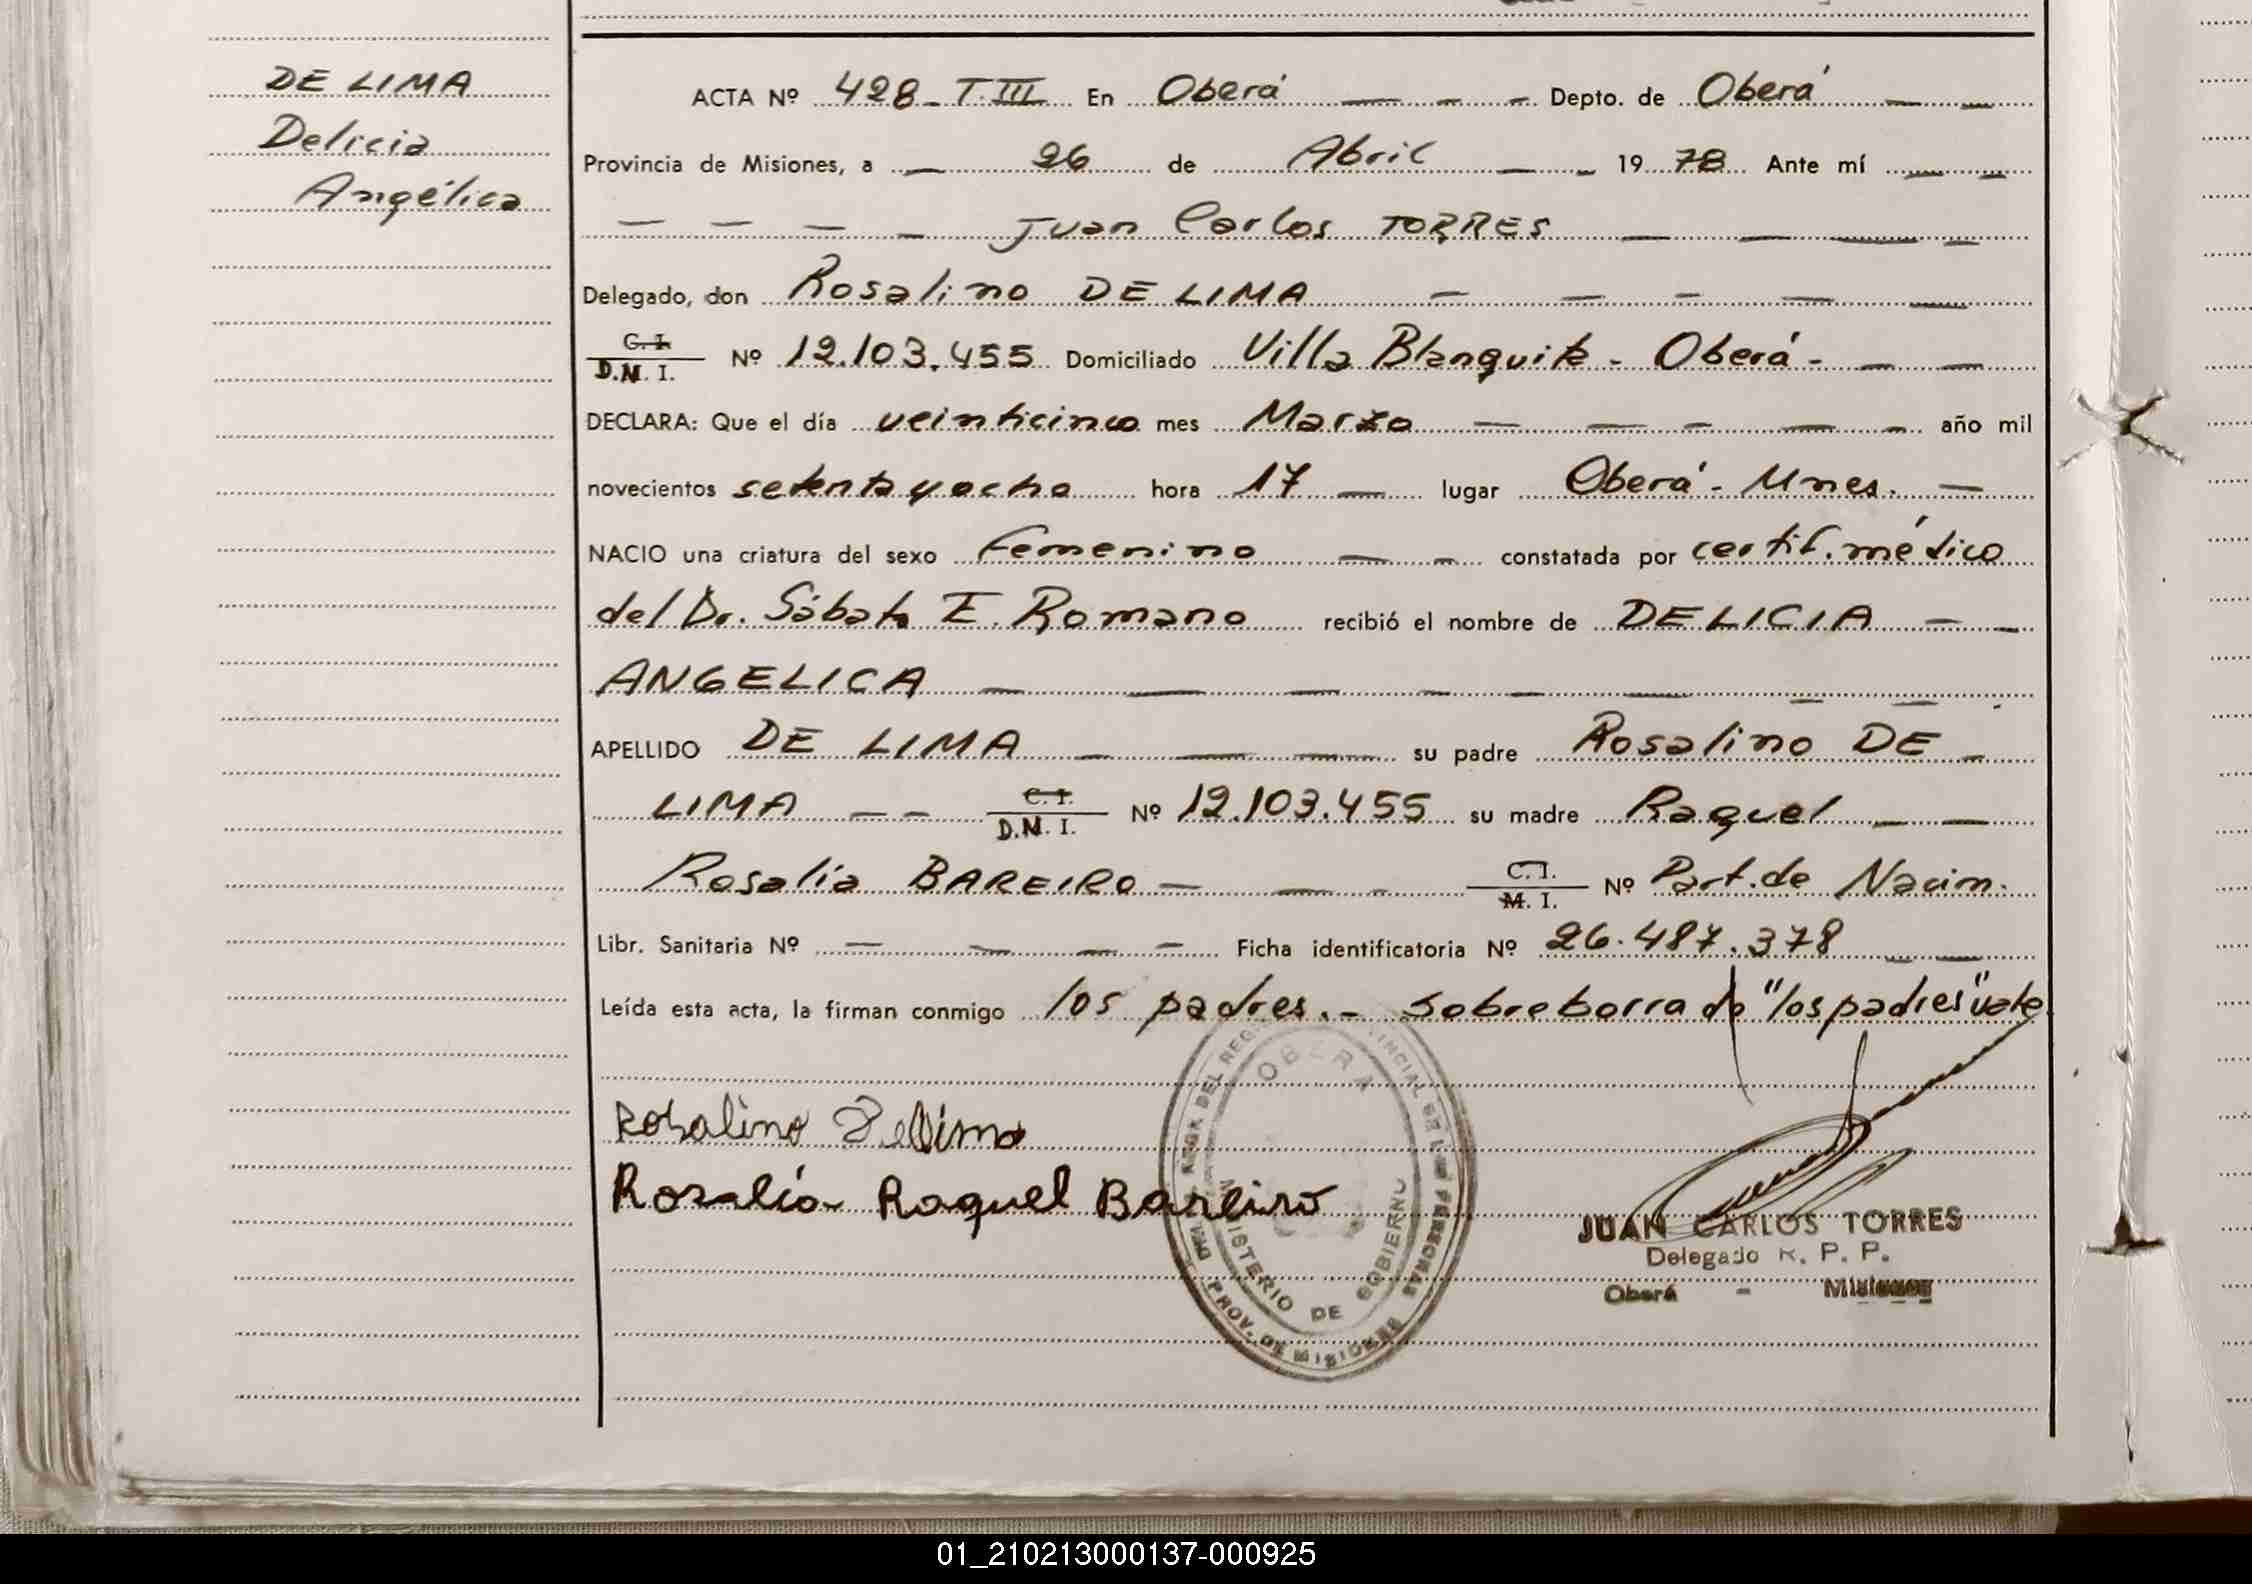 DE LIMA
Delicia
Angélica
ACTA Nº 428 - T. III En Oberá — - - Depto. de Oberá — —
Provincia de Misiones, a — 26 de Abril — - 1978 Ante mí — —
— — — — Juan Carlos TORRES — — — —
Delegado, don Rosalino DE LIMA — — - — —
C. I.
D.N. I. Nº 12.103.455 Domiciliado Villa Blanquita - Oberá - — —
DECLARA: Que el día veinticinco mes Marzo — — - — - año mil
novecientos setenta y ocho hora 17 — lugar Oberá - Mnes. —
NACIO una criatura del sexo Femenino — - constatada por certif. médico
del Dr. Sábato E. Romano recibió el nombre de DELICIA — -
ANGELICA — — — - - — — —
APELLIDO DE LIMA — — — su padre Rosalino DE -
LIMA — — C. I.
D.N. I. Nº 12.103.455 su madre Raquel — —
Rosalía BAREIRO — — - C. I.
M. I. Nº Part. de Nacim.
Libr. Sanitaria Nº — — — - Ficha identificatoria Nº 26.487.378 — —
Leída esta acta, la firman conmigo los padres. - sobreborrado "los padres" vale
Rosalino De Lima
Rosalía Raquel Bareiro
OBERA
MINISTERIO DE GOBIERNO
PROV. DE MISIONES
JUAN CARLOS TORRES
Delegado R. P. P.
Oberá - Misiones
01_210213000137-000925